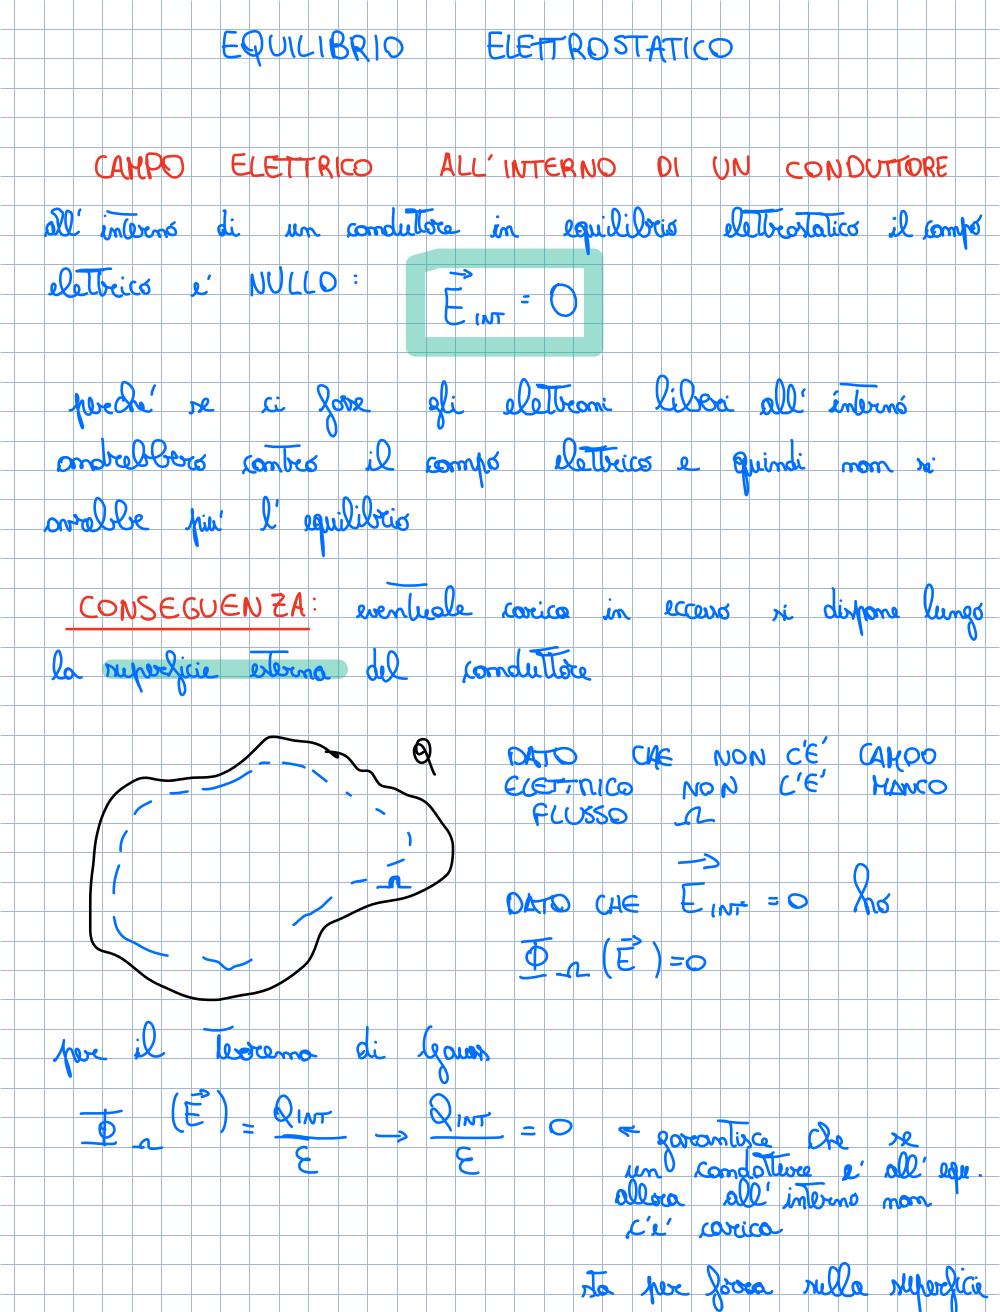 EQUILIBRIO ELETTROSTATICO
CAMPO ELETTRICO ALL'INTERNO DI UN CONDUTTORE
all' interno di un conduttore in equilibrio elettrostatico il campo
elettrico e' NULLO:
E⃗ INT = 0
perche' se ci fosse gli elettroni liberi all' interno
andrebbero contro il campo elettrico e quindi non si
avrebbe piu' l' equilibrio
CONSEGUENZA: eventuale carica in eccesso si dispone lungo
la superficie esterna del conduttore
Q
Ω
DATO CHE NON C'E' CAMPO
ELETTRICO NON C'E' MANCO
FLUSSO Ω
DATO CHE E⃗ INT = 0 ho
Φ Ω (E⃗) = 0
per il teorema di Gauss
Φ Ω (E⃗) = Q INT / ε → Q INT / ε = 0
← garantisce che se
un condottore e' all' equ.
allora all' interno non
c'e' carica
sta per forza sulla superficie